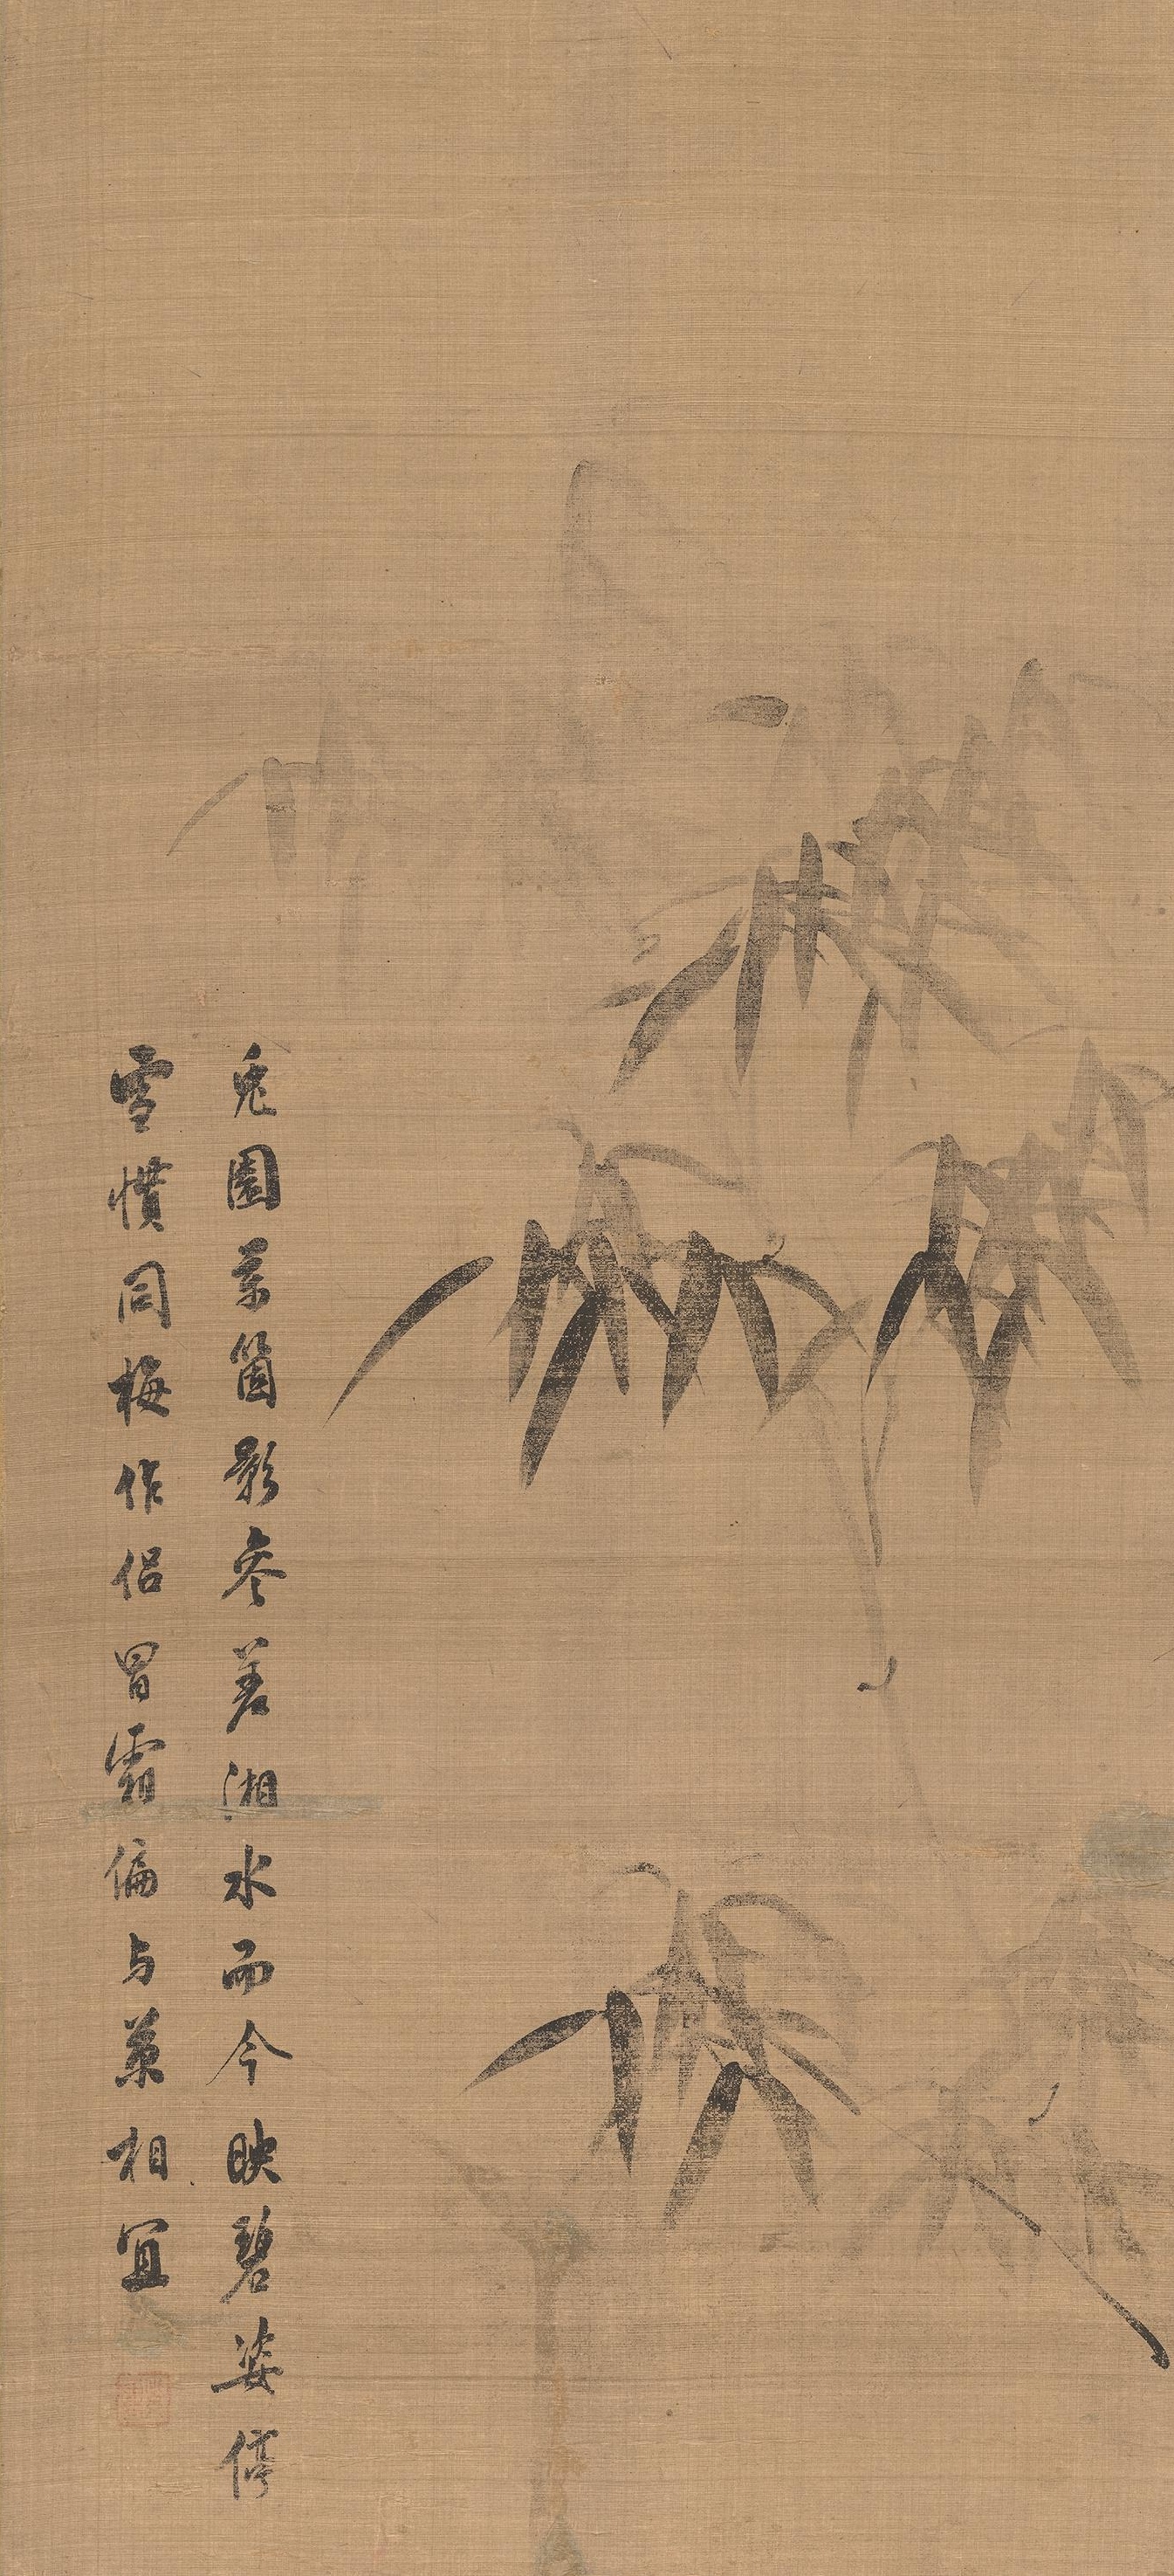 兔園萬箇影參差湘水而今映碧姿停
雪慣同梅作侶冒霜偏与菊相宜